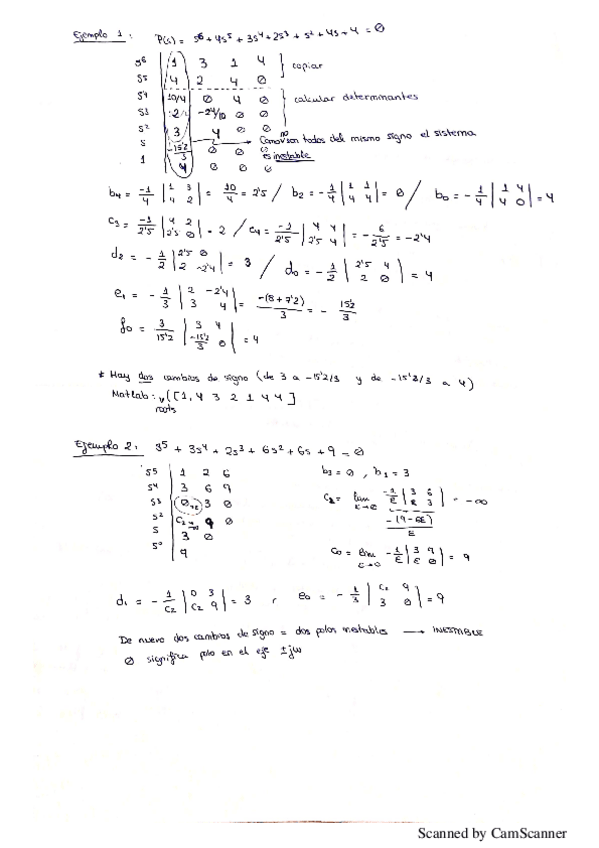 Ejemplo 1: P(s) = s⁶ + 4s⁵ + 3s⁴ + 2s³ + s² + 4s + 4 = 0
s⁶ | 1 3 1 4 } copiar
s⁵ | 4 2 4 0
s⁴ | 10/4 0 4 0 } calcular determinantes
s³ | 2 -24/10 0 0
s² | 3 4 0 0
s | -15'2/3 0 0 0 Como no son todos del mismo signo el sistema es inestable
1 | 4 0 0 0
b₄ = -1/4 |1 3; 4 2| = 10/4 = 2'5 / b₂ = -1/4 |1 1; 4 4| = 0 / b₀ = -1/4 |1 4; 4 0| = 4
c₃ = -1/2'5 |4 2; 2'5 0| = 2 / c₁ = -1/2'5 |4 4; 2'5 4| = -6/2'5 = -2'4
d₂ = -1/2 |2'5 0; 2 -2'4| = 3 / d₀ = -1/2 |2'5 4; 2 0| = 4
e₁ = -1/3 |2 -2'4; 3 4| = -(8+7'2)/3 = -15'2/3
f₀ = 3/15'2 |3 4; -15'2/3 0| = 4
* Hay dos cambios de signo (de 3 a -15'2/3 y de -15'2/3 a 4)
Matlab: roots([1, 4 3 2 1 4 4]
Ejemplo 2: s⁵ + 3s⁴ + 2s³ + 6s² + 6s + 9 = 0
s⁵ | 1 2 6 b₃ = 0, b₁ = 3
s⁴ | 3 6 9
s³ | 0 3 0 c₂ = lim ε→0 -1/ε |3 6; ε 3| = -∞
s² | c₂ 9 0 -(9-6ε)/ε
s | 3 0
s⁰ | 9 c₀ = lim ε→0 -1/ε |3 9; ε 0| = 9
d₁ = -1/c₂ |0 3; c₂ 9| = 3, e₀ = -1/3 |c₂ 9; 3 0| = 9
De nuevo dos cambios de signo = dos polos inestables → INESTABLE
0 significa polo en el eje ±jw
Scanned by CamScanner